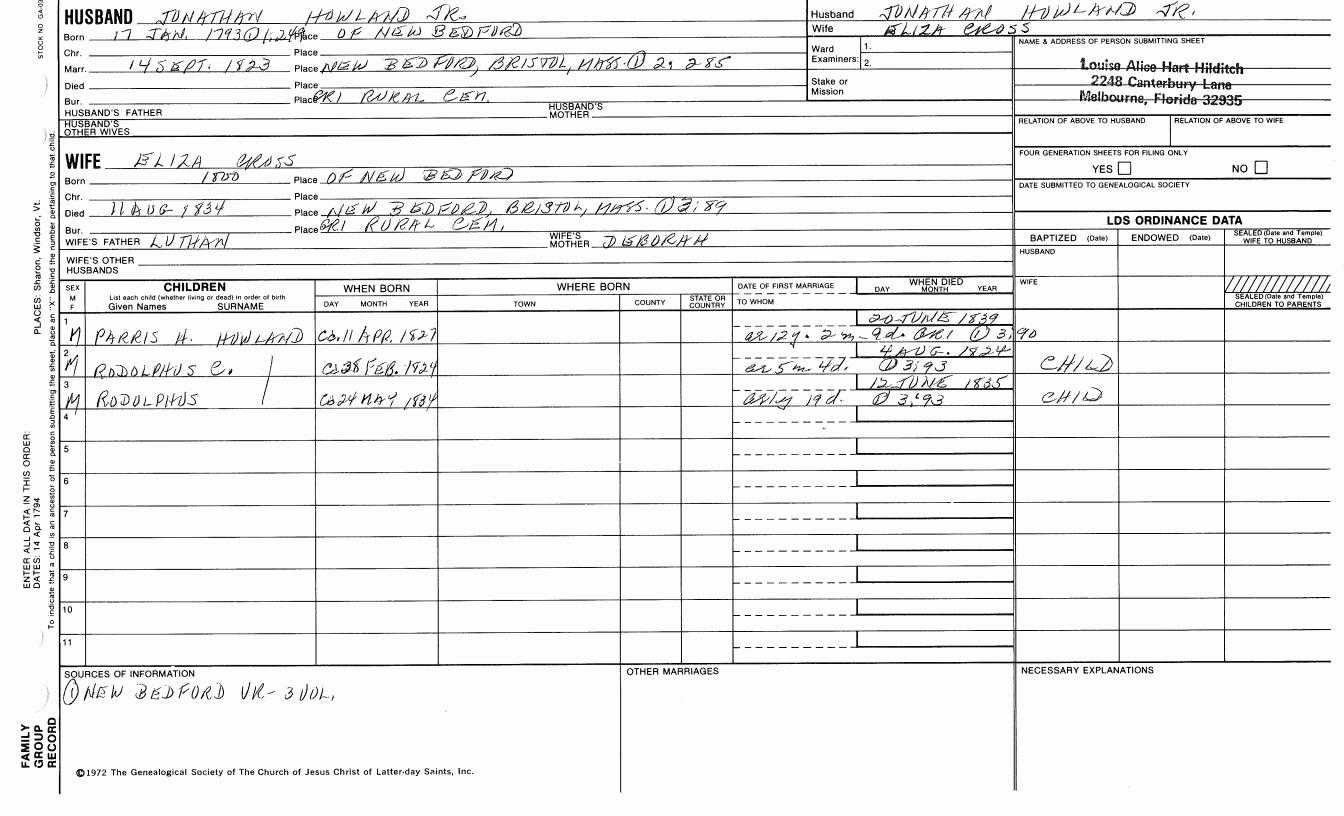 HUSBAND JONATHAN HOWLAND JR.
Born 17 JAN. 1793 ① 1:249 Place OF NEW BEDFORD
Chr. Place
Marr. 14 SEPT. 1823 Place NEW BEDFORD, BRISTOL, MASS. ① 2, 285
Died Place
Bur. Place GR1 RURAL CEM.
HUSBAND'S FATHER HUSBAND'S MOTHER
HUSBAND'S OTHER WIVES
WIFE ELIZA CROSS
Born 1800 Place OF NEW BEDFORD
Chr. Place
Died 11 AUG 1834 Place NEW BEDFORD, BRISTOL, MASS. ① 3:89
Bur. Place GR1 RURAL CEM.
WIFE'S FATHER LUTHAN WIFE'S MOTHER DEBORAH
WIFE'S OTHER HUSBANDS
Husband JONATHAN HOWLAND JR.
Wife ELIZA CROSS
Ward Examiners: 1.
2.
Stake or Mission
NAME & ADDRESS OF PERSON SUBMITTING SHEET
Louise Alice Hart Hilditch
2248 Canterbury Lane
Melbourne, Florida 32935
RELATION OF ABOVE TO HUSBAND RELATION OF ABOVE TO WIFE
FOUR GENERATION SHEETS FOR FILING ONLY
YES NO
DATE SUBMITTED TO GENEALOGICAL SOCIETY
LDS ORDINANCE DATA
BAPTIZED (Date) ENDOWED (Date) SEALED (Date and Temple) WIFE TO HUSBAND
HUSBAND
WIFE
SEALED (Date and Temple) CHILDREN TO PARENTS
SEX M F CHILDREN List each child (whether living or dead) in order of birth Given Names SURNAME
WHEN BORN DAY MONTH YEAR
WHERE BORN TOWN COUNTY STATE OR COUNTRY
DATE OF FIRST MARRIAGE TO WHOM
WHEN DIED DAY MONTH YEAR
1 M PARRIS H. HOWLAND Ca. 11 APR. 1827 20 JUNE 1839 ae 12y. 2m. 9d. GR1 ① 3:90
2 M RODOLPHUS C. Ca 28 FEB. 1824 4 AUG. 1824 ae 5m 4d. ① 3:93 CHILD
3 M RODOLPHUS Ca 24 MAY 1834 12 JUNE 1835 ae 1y 19d. ① 3:93 CHILD
4
5
6
7
8
9
10
11
SOURCES OF INFORMATION
① NEW BEDFORD VR- 3 VOL.
OTHER MARRIAGES
NECESSARY EXPLANATIONS
©1972 The Genealogical Society of The Church of Jesus Christ of Latter-day Saints, Inc.
STOCK NO.
PLACES: Sharon, Windsor, Vt.
ENTER ALL DATA IN THIS ORDER:
DATES: 14 Apr 1794
To indicate that a child is an ancestor of the person submitting the sheet, place an "X" behind the number pertaining to that child.
FAMILY GROUP RECORD